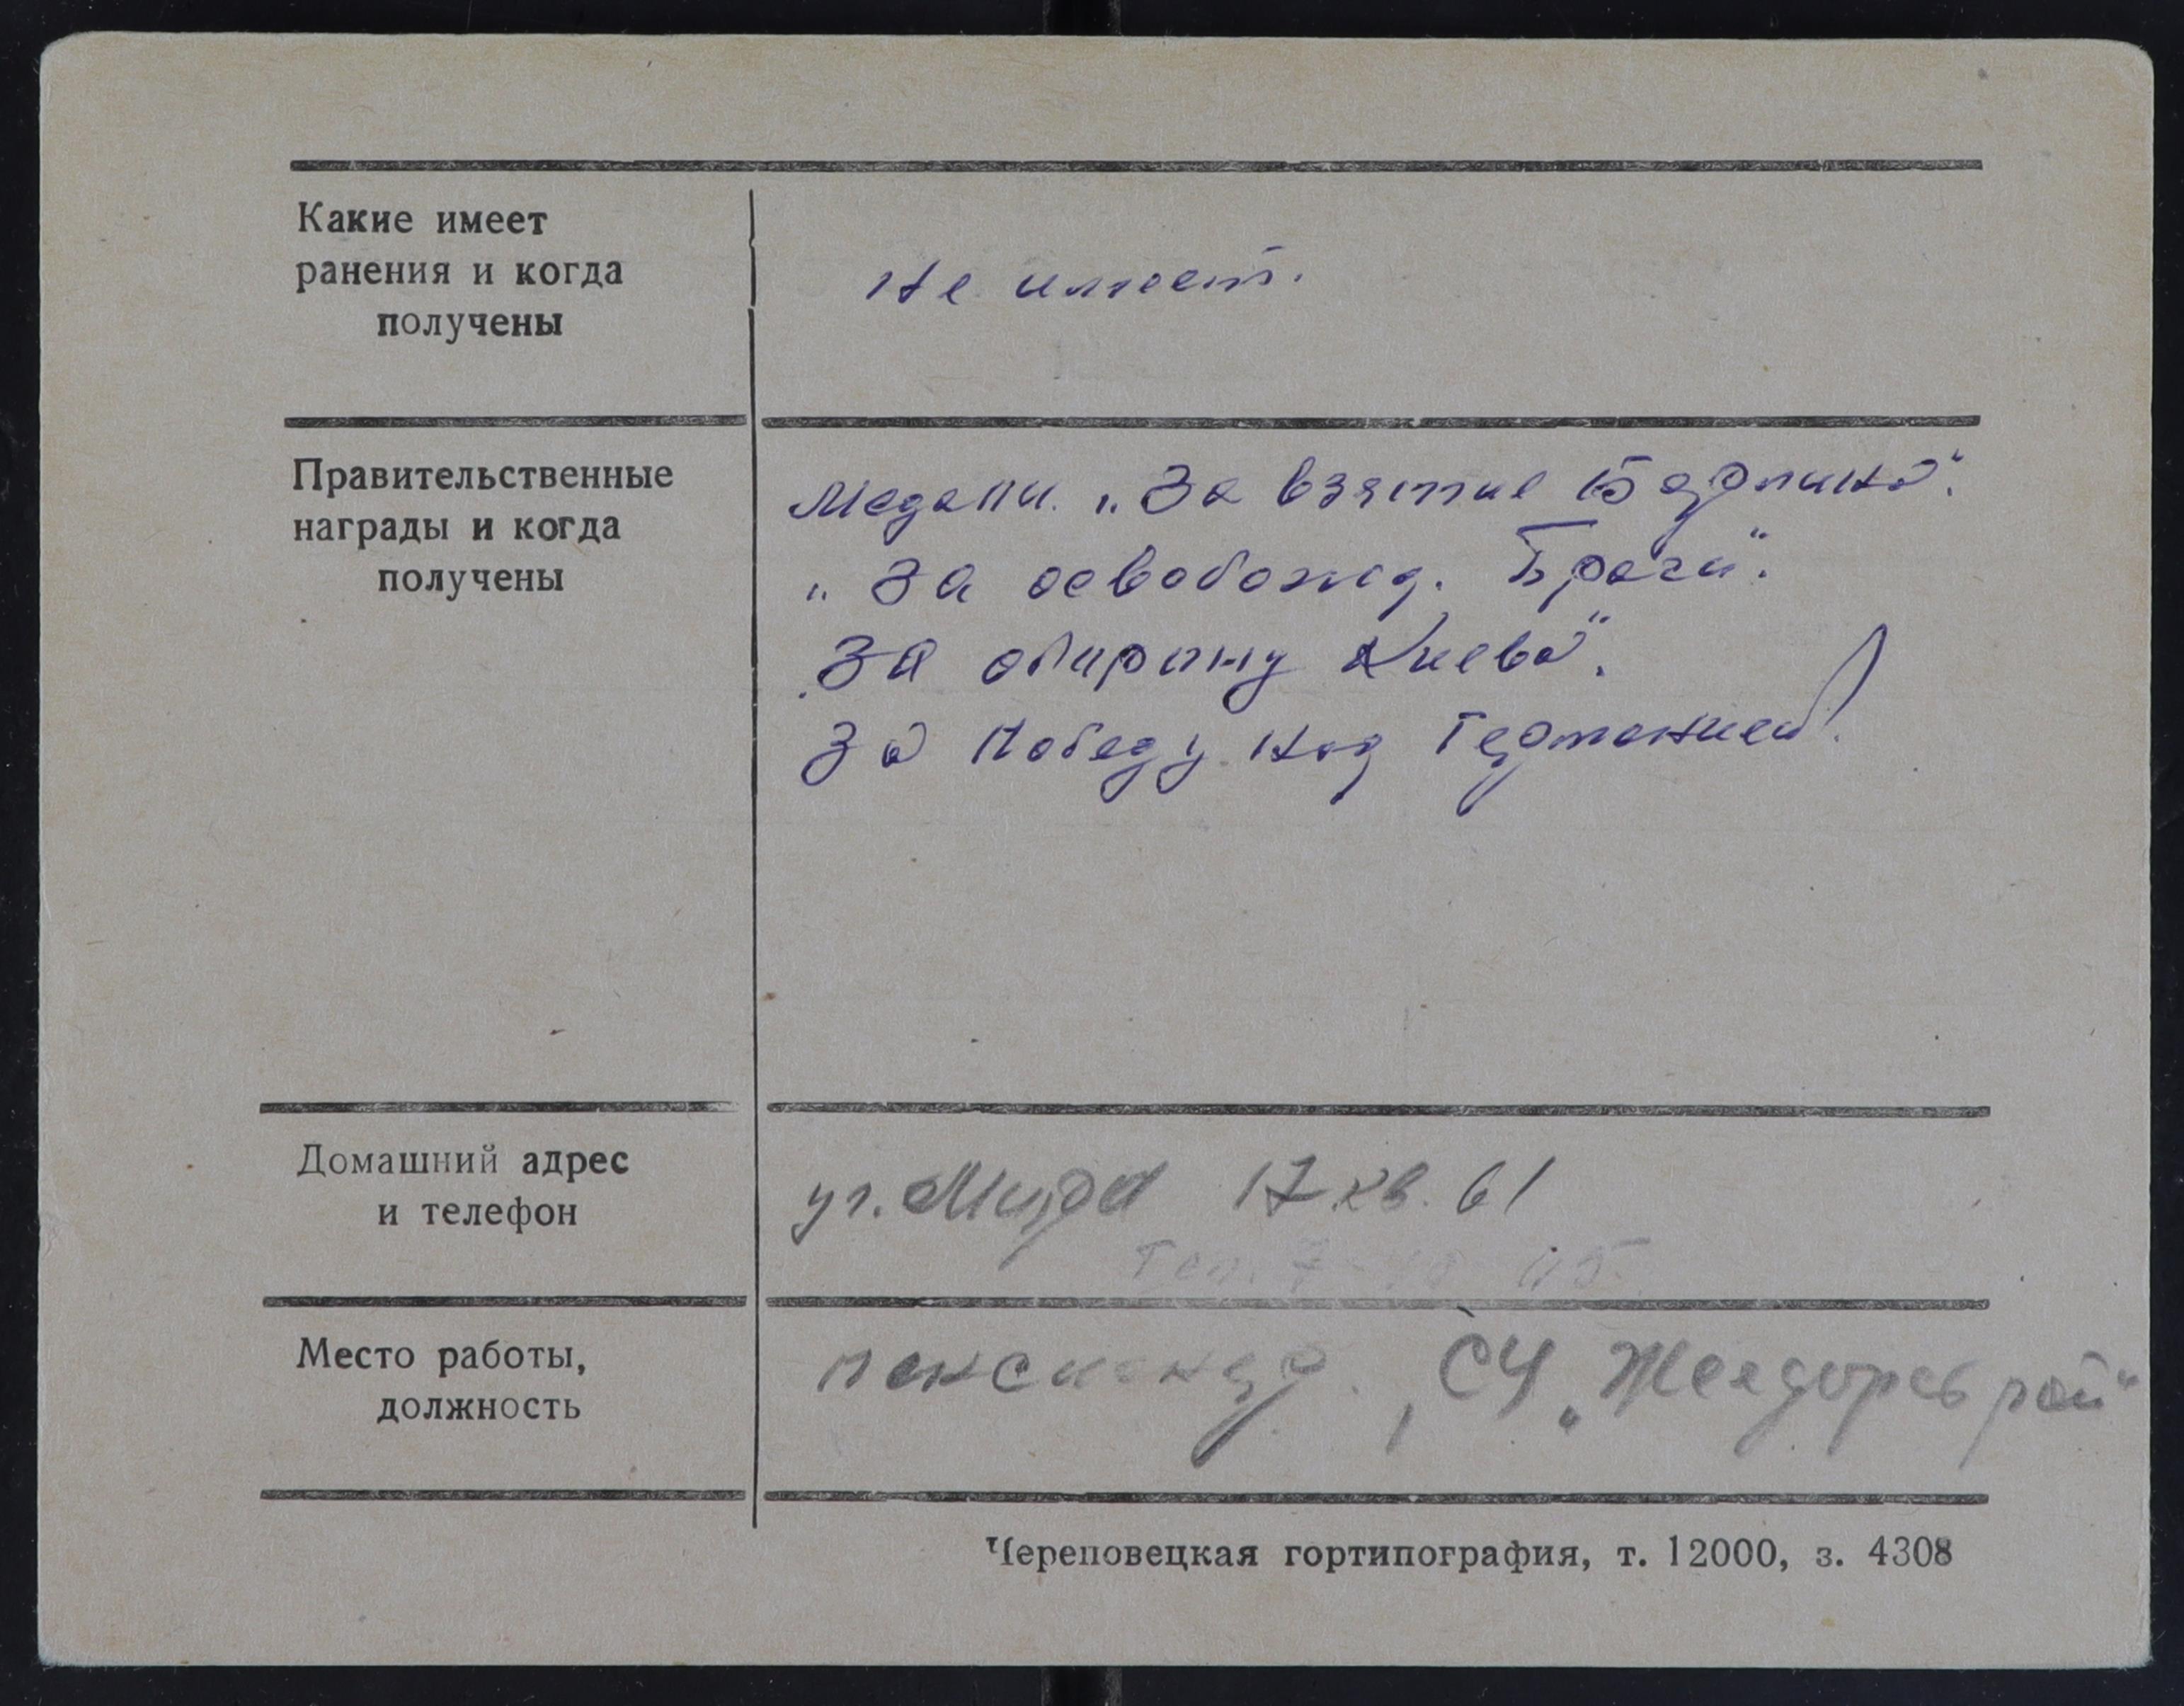 Какие имеет
ранения и когда
получены
Не имеет.
Правительственные
награды и когда
получены
Медали. „За взятие Берлина".
„За освобожд. Праги".
„За оборону Киева".
За Победу над Германией!
Домашний адрес
и телефон
ул. Мира 17 кв. 61
Тел. 7
Место работы,
должность
пенсионер. , СУ „Желдорстрой"
Череповецкая гортипография, т. 12000, з. 4308